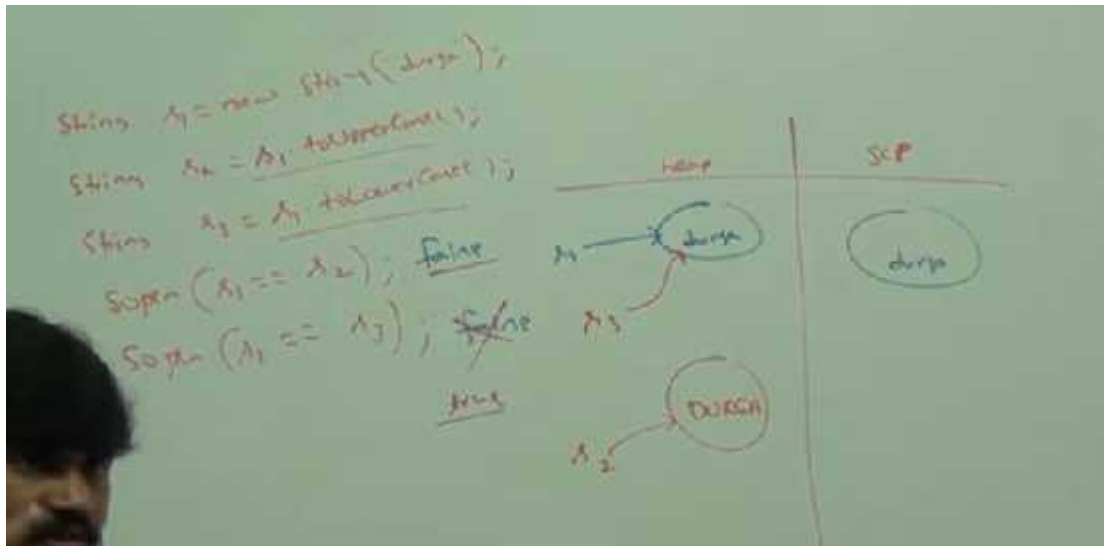 String s1 = new String("durga");
String s2 = s1.toUpperCase();
String s3 = s1.toLowerCase();
Sopln(s1 == s2); false
Sopln(s1 == s3); false
true
heap SCP
s1 durga durga
s3
DURGA
s2